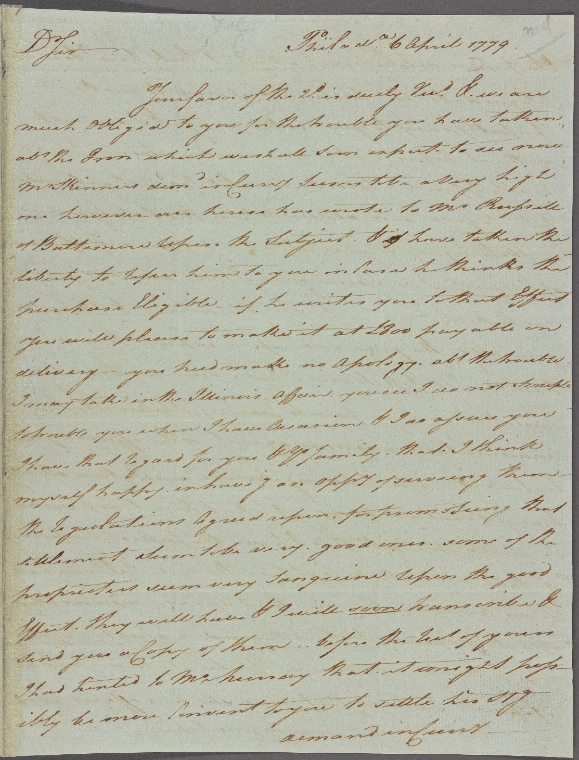 Dr Sir
Philada 6 April 1779.
Your favor of the 2d is duely Recd & we are
much obliged to you for the trouble you have taken
abt the Iron which we shall soon expect to see now
Mr Skinners demd in Curry seems to be a very high
one however our house has wrote to Mr
of Baltimore upon the Subject. & have taken the
liberty to refer him to you in Case he thinks the
purchase Eligible if he writes you to that Effect
you will please to make it at £800 payable on
delivery - you need make no Apology abt the trouble
I may take in the Illinois Affair you see I do not scruple
to trouble you when I have Occasion & I do assure you
I have that regard for you & yr family that I think
myself happy in having an oppy of serving them
the regulations agreed upon for promoting that
settlement seem to be very good ones. some of the
proprietors seem very Sanguine upon the good
Effect they will have & I will soon transcribe &
send you a Copy of them .. before the Rect of yours
I had hinted to Mr Murray that it might poss
ibly be more Convent to you to settle his Stg
demand in Curry